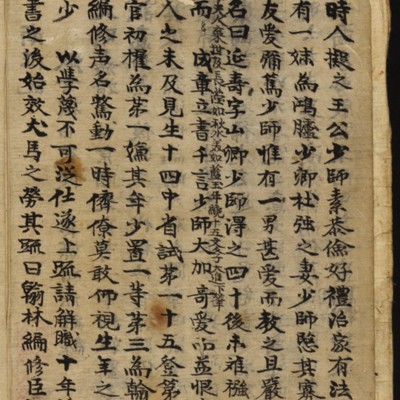 時人擬之王公少師素恭儉好禮治家有法
有一妹為鴻臚少卿杜強之妻少師愍其寡
友愛彌篤少師惟有一男甚愛而教之且嚴
名曰延壽字山卿少師得之四十後未離襁
夫人棄世及長瑩如秋水美如藍玉年十五文字大進下筆
而成章立書千言少師大加哥愛而益恨
入之未及見生十四中省試第一十五登第
官初擢為第一嫌其年少置一等第三為翰
編修声名驚動一時儕僚莫敢仰視生年之
少 以學蔑不可從仕遂上疏請解職十年
書之後始效犬馬之勞其疏曰翰林編修臣